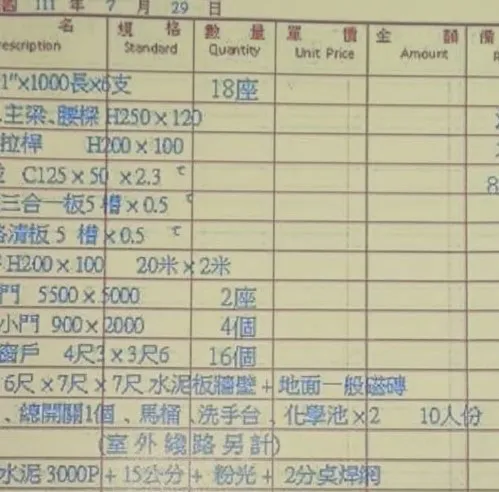 國 111 年 7 月 29 日
名 規 格 數 量 單 價 金 額 備
escription Standard Quantity Unit Price Amount
1"×1000長×6支 18座
主梁、腰樑 H250×120
拉桿 H200×100
C125×50×2.3 t
三合一板5 槽×0.5 t
浴清板 5 槽×0.5 t
H200×100 20米×2米
門 5500×5000 2座
小門 900×2000 4個
窗戶 4尺3×3尺6 16個
6尺×7尺×7尺 水泥板牆壁+地面一般磁磚
、總開關1個、馬桶、洗手台、化學池×2 10人份
(室外線路另計)
水泥 3000P+15公分+粉光+2分桌焊網